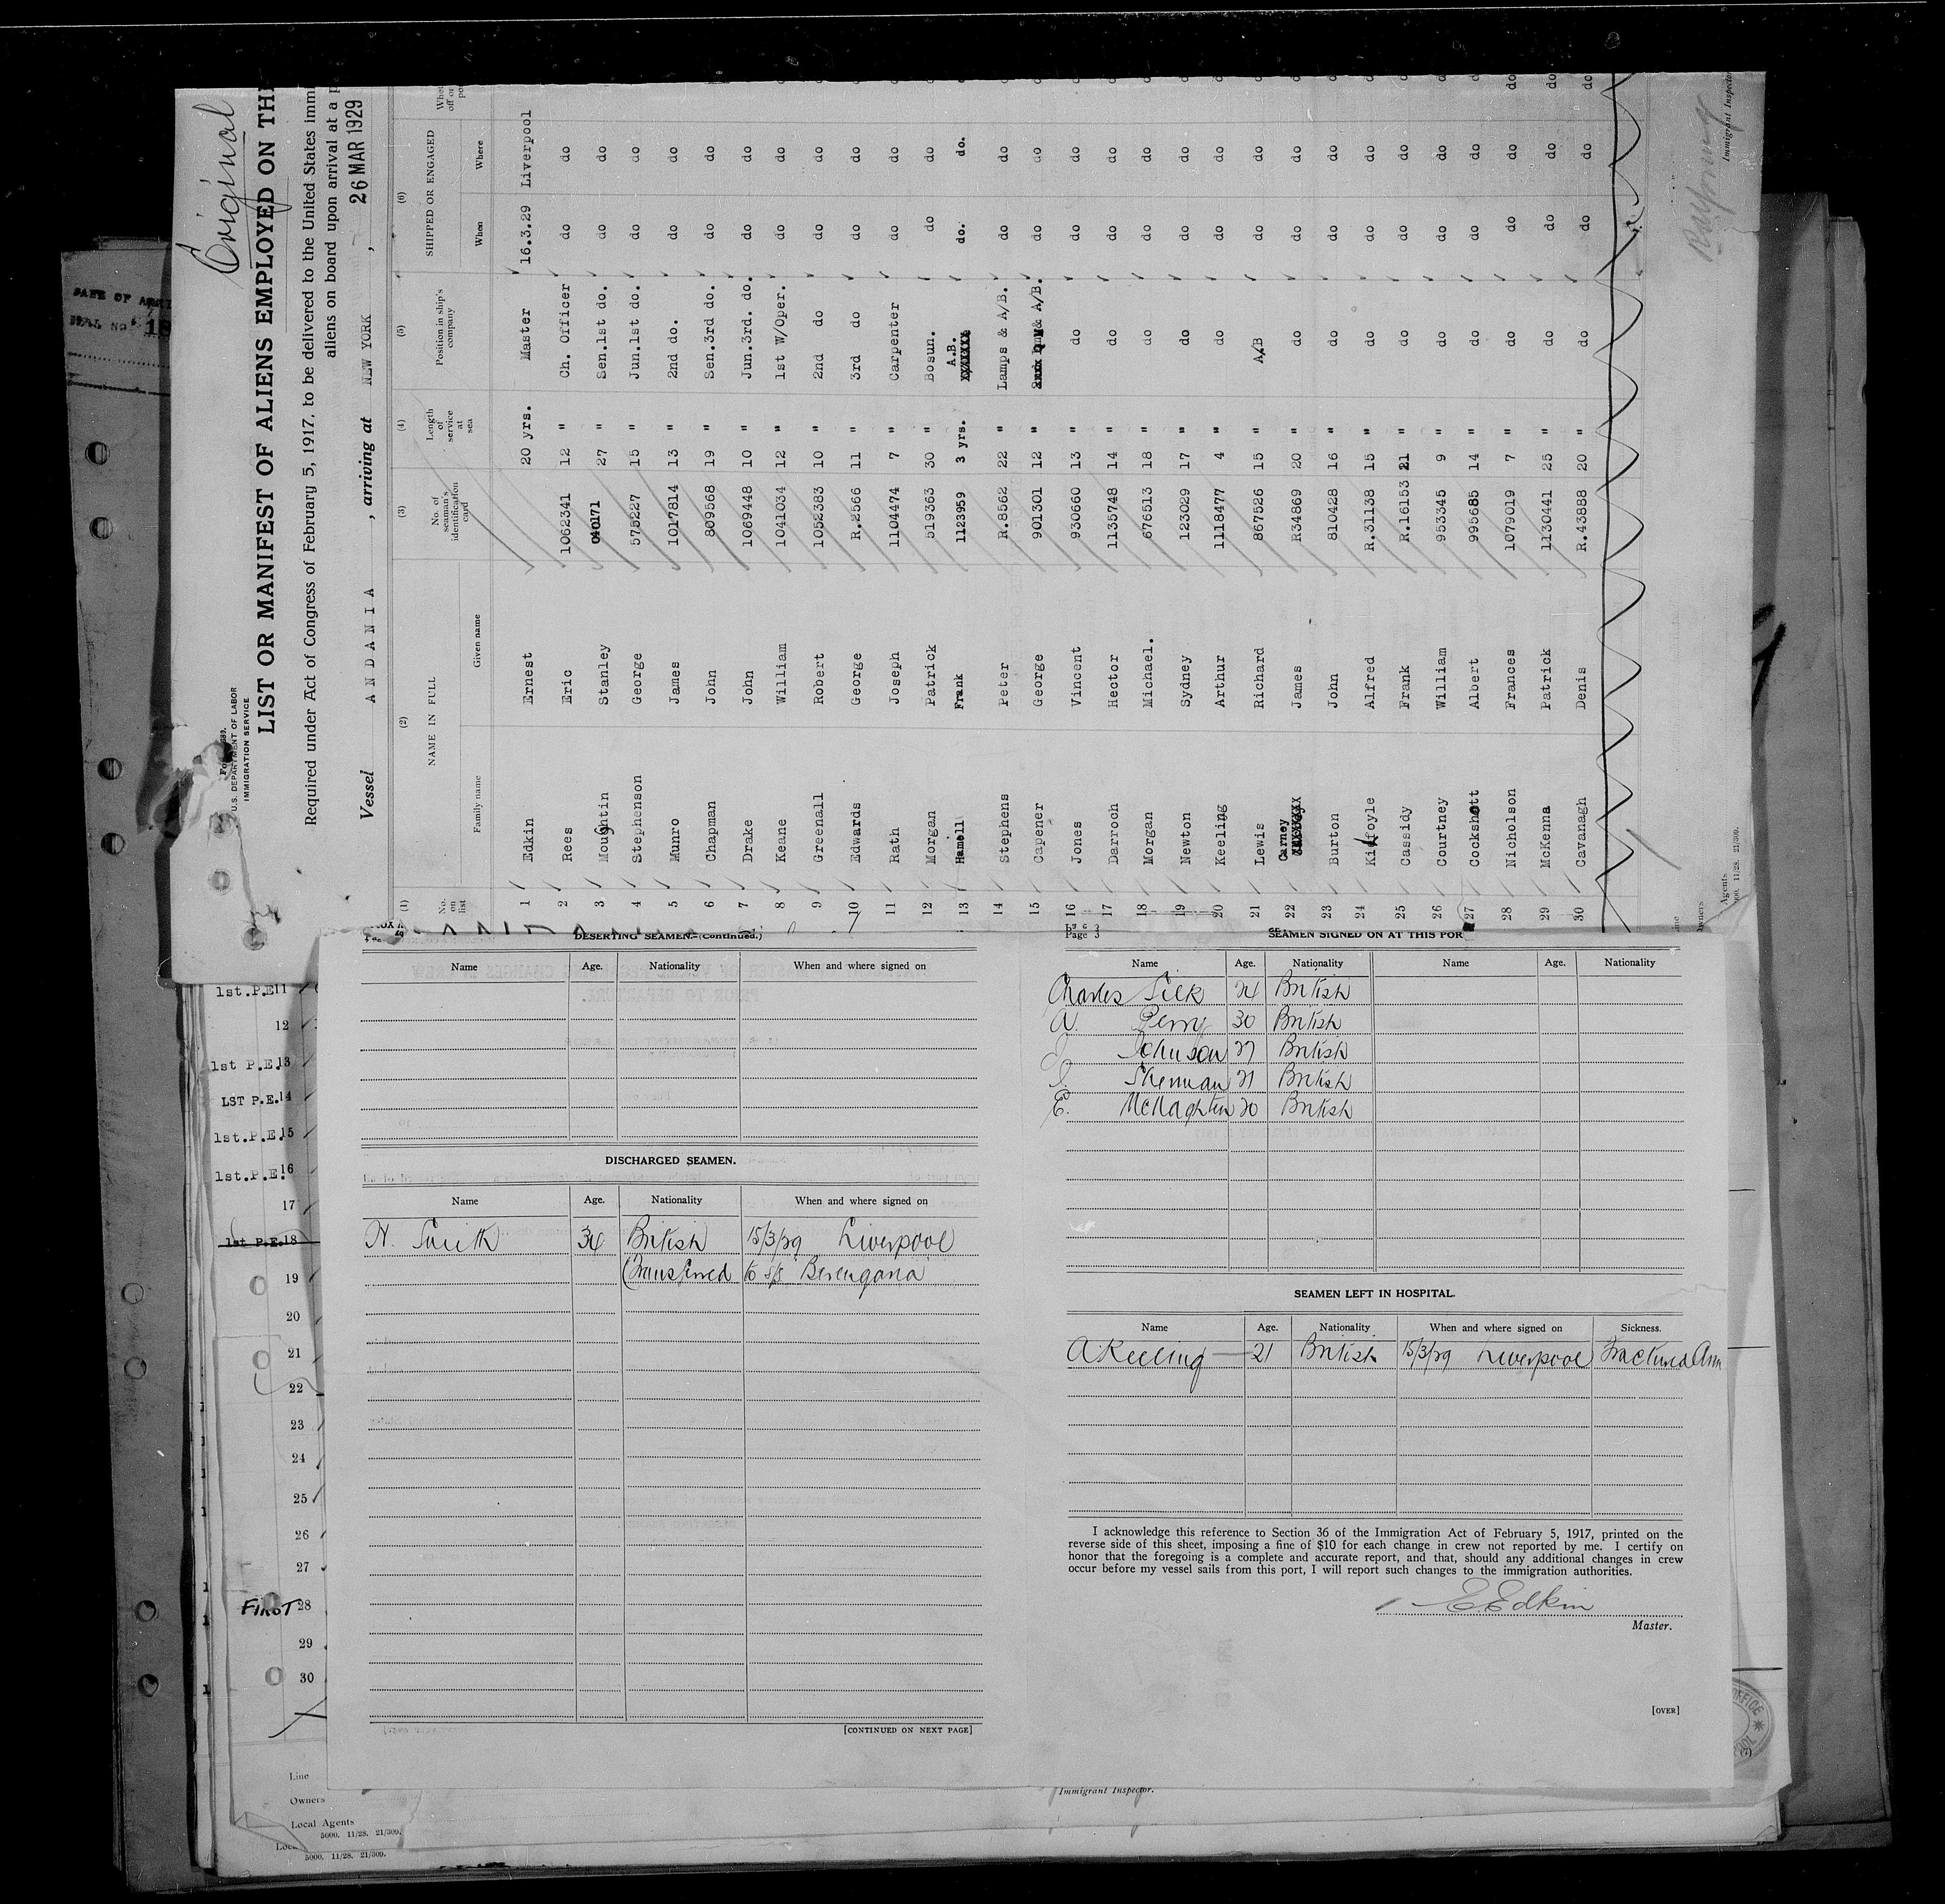 Original
U.S. DEPARTMENT OF LABOR
IMMIGRATION SERVICE
LIST OR MANIFEST OF ALIENS EMPLOYED ON THE
Required under Act of Congress of February 5, 1917, to be delivered to the United States immi
aliens on board upon arrival at a p
Vessel ANDANIA , arriving at NEW YORK , 26 MAR 1929
(1) (2) (3) (4) (5) (6)
No. on list NAME IN FULL No. of seaman's identification card Length of service at sea Position in ship's company SHIPPED OR ENGAGED
Family name Given name When Where
1 Edkin Ernest 20 yrs. Master 16.3.29 Liverpool
2 Rees Eric 1062341 12 " Ch. Officer do do
3 Moughtin Stanley 040171 27 " Sen.1st do. do do
4 Stephenson George 575227 15 " Jun.1st do. do do
5 Munro James 1017814 13 " 2nd do. do do
6 Chapman John 809568 19 " Sen.3rd do. do do
7 Drake John 1069448 10 " Jun.3rd. do. do do
8 Keane William 1041034 12 " 1st W/Oper. do do
9 Greenall Robert 1052383 10 " 2nd do do do
10 Edwards George R.2566 11 " 3rd do do do
11 Rath Joseph 1104474 7 " Carpenter do do
12 Morgan Patrick 519363 30 " Bosun. do do
13 Hamell Frank 1123959 3 yrs. A.B. do. do.
14 Stephens Peter R.8562 22 " Lamps & A/B. do do
15 Capener George 901301 12 " & A/B. do do
16 Jones Vincent 930660 13 " do do do
17 Darroch Hector 1135748 14 " do do do
18 Morgan Michael. 676513 18 " do do do
19 Newton Sydney 123029 17 " do do do
20 Keeling Arthur 1118477 4 " do do do
21 Lewis Richard 867526 15 " A/B do do
22 Carney James R34869 20 " do do do
23 Burton John 810428 16 " do do do
24 Kilfoyle Alfred R.31138 15 " do do do
25 Cassidy Frank R.16153 21 " do do do
26 Courtney William 953345 9 " do do do
27 Cockshott Albert 995685 14 " do do do
28 Nicholson Frances 1079019 7 " do do do
29 McKenna Patrick 1130441 25 " do do do
30 Cavanagh Denis R.43888 20 " do do do
Immigrant Inspector
Agents
11/28. 21/309.
DESERTING SEAMEN.—(Continued.)
Name Age. Nationality When and where signed on
DISCHARGED SEAMEN.
Name Age. Nationality When and where signed on
H. Smith 34 British 15/3/29 Liverpool
(Transferred to S/S Berengaria
[CONTINUED ON NEXT PAGE]
Page 3
SEAMEN SIGNED ON AT THIS POR
Name Age. Nationality Name Age. Nationality
Charles Silk 24 British
A. Perry 30 British
Johnson 27 British
Sherman 21 British
E. McNaghten 20 British
SEAMEN LEFT IN HOSPITAL.
Name Age. Nationality When and where signed on Sickness.
A Keeling 21 British 15/3/29 Liverpool Fractured Arm
I acknowledge this reference to Section 36 of the Immigration Act of February 5, 1917, printed on the
reverse side of this sheet, imposing a fine of $10 for each change in crew not reported by me. I certify on
honor that the foregoing is a complete and accurate report, and that, should any additional changes in crew
occur before my vessel sails from this port, I will report such changes to the immigration authorities.
E Edkin
Master.
[OVER]
1st.P.E 11
12
1st P.E. 13
LST P.E. 14
1st.P.E. 15
1st.P.E. 16
17
1st P.E. 18
19
20
21
22
23
24
25
26
27
FIRST 28
29
30
Line
Owners
Local Agents
5000. 11/28. 21/309.
5000. 11/28. 21/309.
Immigrant Inspector.